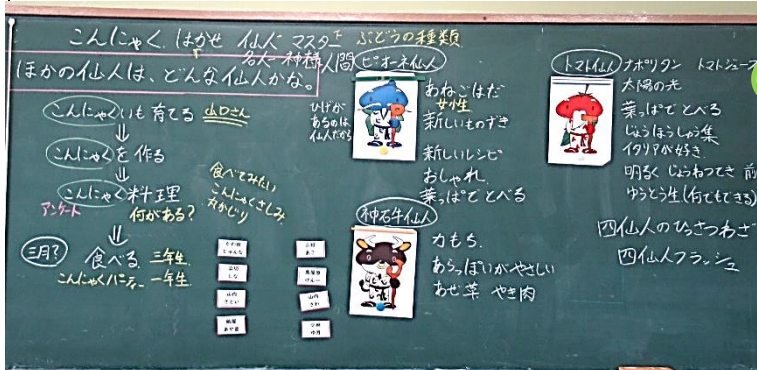 こんにゃく はかせ 仙人 マスター ぶどうの種類
名人 神様 人間
ほかの仙人は、どんな仙人かな。
こんにゃくいも 育てる 山口さん
⇓
こんにゃくを 作る
⇓
こんにゃく料理
アンケート 何がある?
食べてみたい
こんにゃくさしみ
丸かじり
⇓
三月? 食べる 三年生
こんにゃくパーティー 一年生
ピオーネ仙人
ひげが
あるのは
仙人だから
あねごはだ
女性
新しいものずき
新しいレシピ
おしゃれ
葉っぱでとべる
神石牛仙人
力もち
あらっぽいがやさしい
あせ 草 やき肉
トマト仙人 ナポリタン トマトジュース
太陽の光
葉っぱでとべる
じょうほうしゅう集
イタリアが好き
明るく じょうねつてき 前
ゆうとう生(何でもできる)
四仙人のひっさつわざ
四仙人フラッシュ